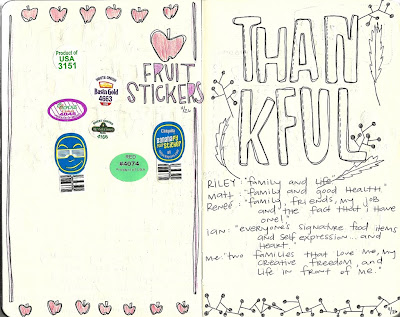 Product of
USA
3151
FRUIT
STICKERS
4663
4046
4166
RED
#4074
Chiquita
THAN
KFUL
RILEY: "family and life"
Matt: "Family and good Health."
Reneé: "family, friends, my job
and the fact that I have
one!"
Ian: "everyone's signature food items
and self expression... and
heart."
me: "two families that love me, my
creative freedom, and
life in front of me."